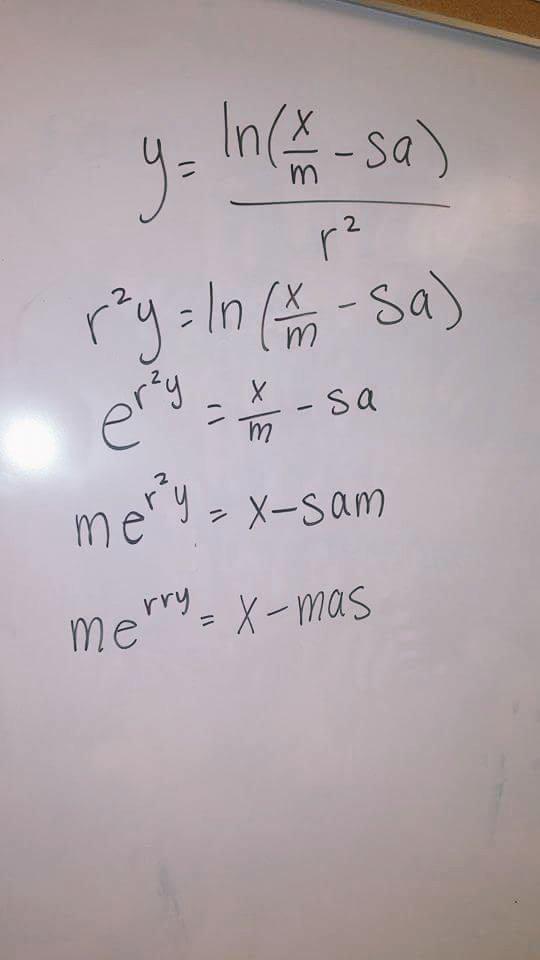 y = ln(x/m - sa) / r²
r²y = ln(x/m - sa)
e^(r²y) = x/m - sa
me^(r²y) = x - sam
me^(rry) = x - mas